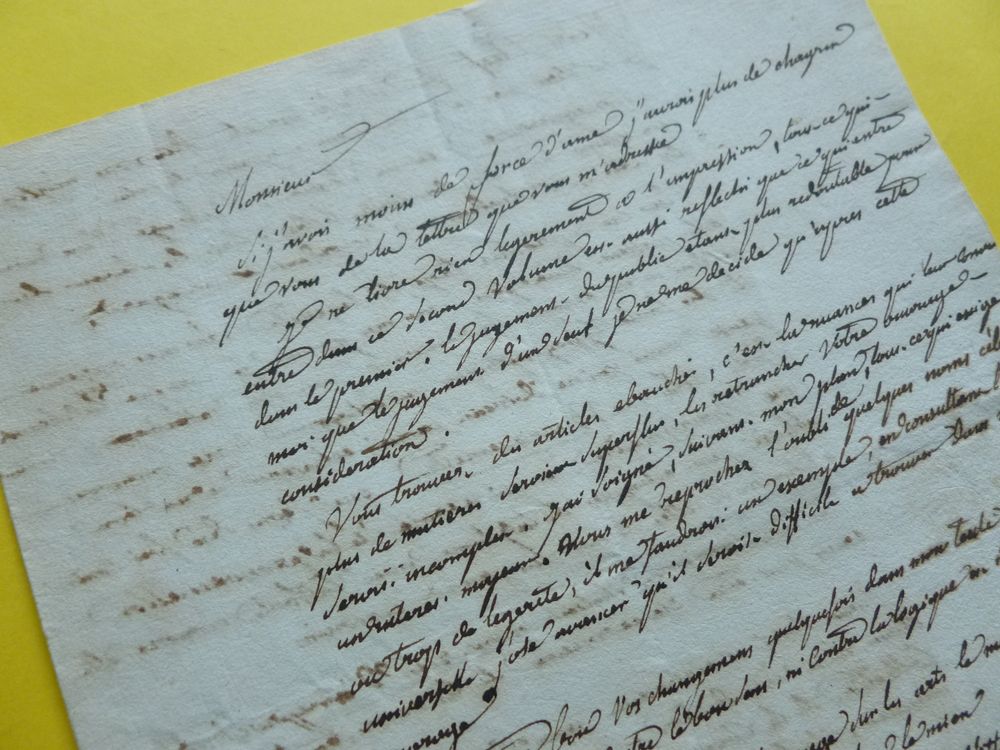 Monsieur
Si j'avois moins de force d'ame j'aurois plus de chagrin
que vous de la lettre que vous m'adressés
je ne livre rien legerement a l'impression, tous ce qui
entre dans ce second volume est aussi reflechi que ce qui entre
dans le premier. le jugement du public etant plus redoutable pour
moi que le jugement d'un seul je ne me decide qu'apres cette
consideration.
Vous trouvez des articles ebauchés, c'est les nuances qui leur
plus de matieres seroient superflus, les retrancher votre ouvrage
serois incomplet. j'ai soigné, suivant mon plan, tous ce qui exige
un interet moyen. Vous me reprochez l'oubli de quelques noms
ou trop de legereté, il me faudroit un exemple, en consultant
universelle j'ose avancer qu'il seroit difficile a trouver dans
ouvrage
Vos changemens quelquefois dans mon texte
contre le bon sens, ni contre la logique
sur les arts le
le mien